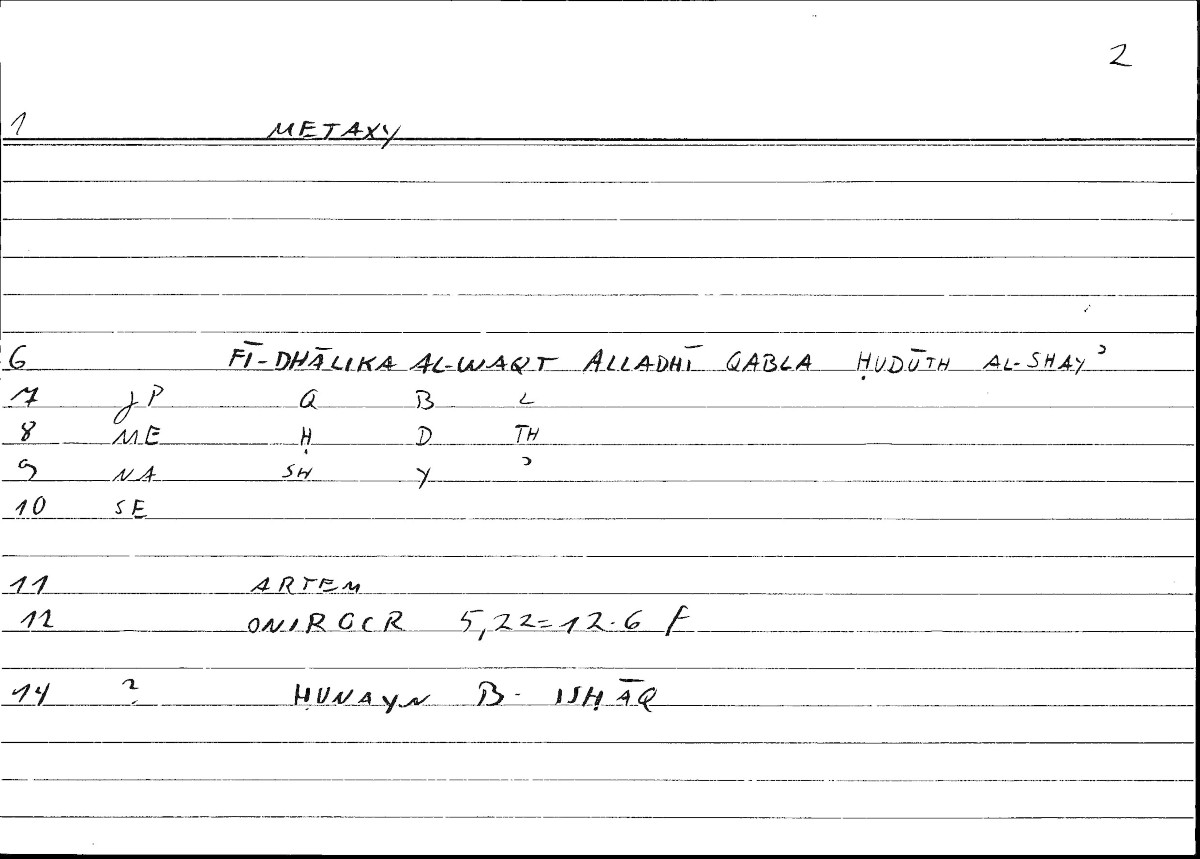 2
1 METAXY
6 FĪ-DHĀLIKA AL-WAQT ALLADHĪ QABLA ḤUDŪTH AL-SHAYʾ
7 JP Q B L
8 ME Ḥ D TH
9 NA SH Y ʾ
10 SE
11 ARTEM
12 ONIROCR 5,22=12.6 f
14 ? ḤUNAYN B. ISḤĀQ